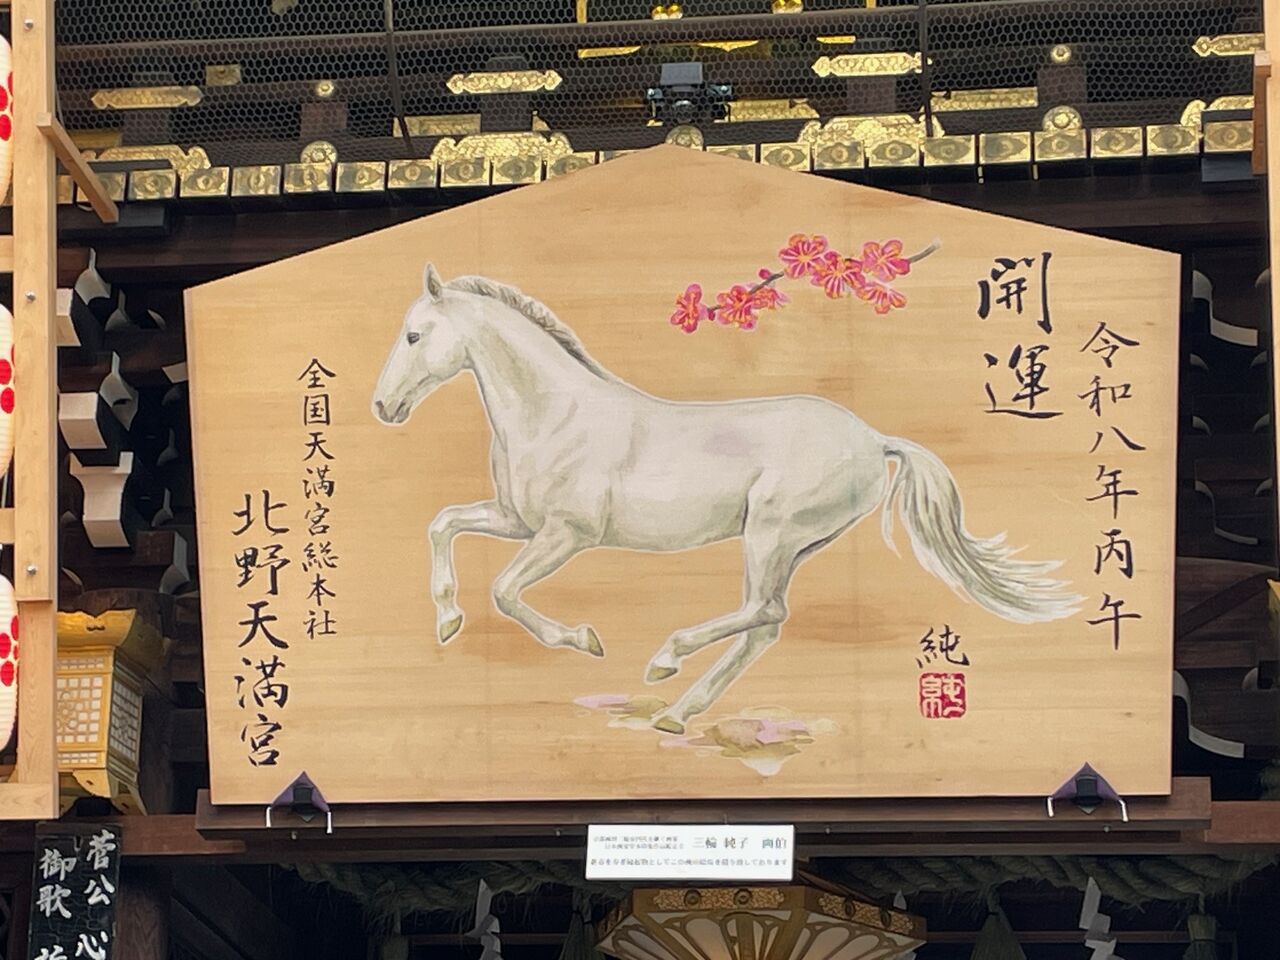 開運
令和八年丙午
純
純
全国天満宮総本社
北野天満宮
三輪 純子 画伯
菅公
御歌
心